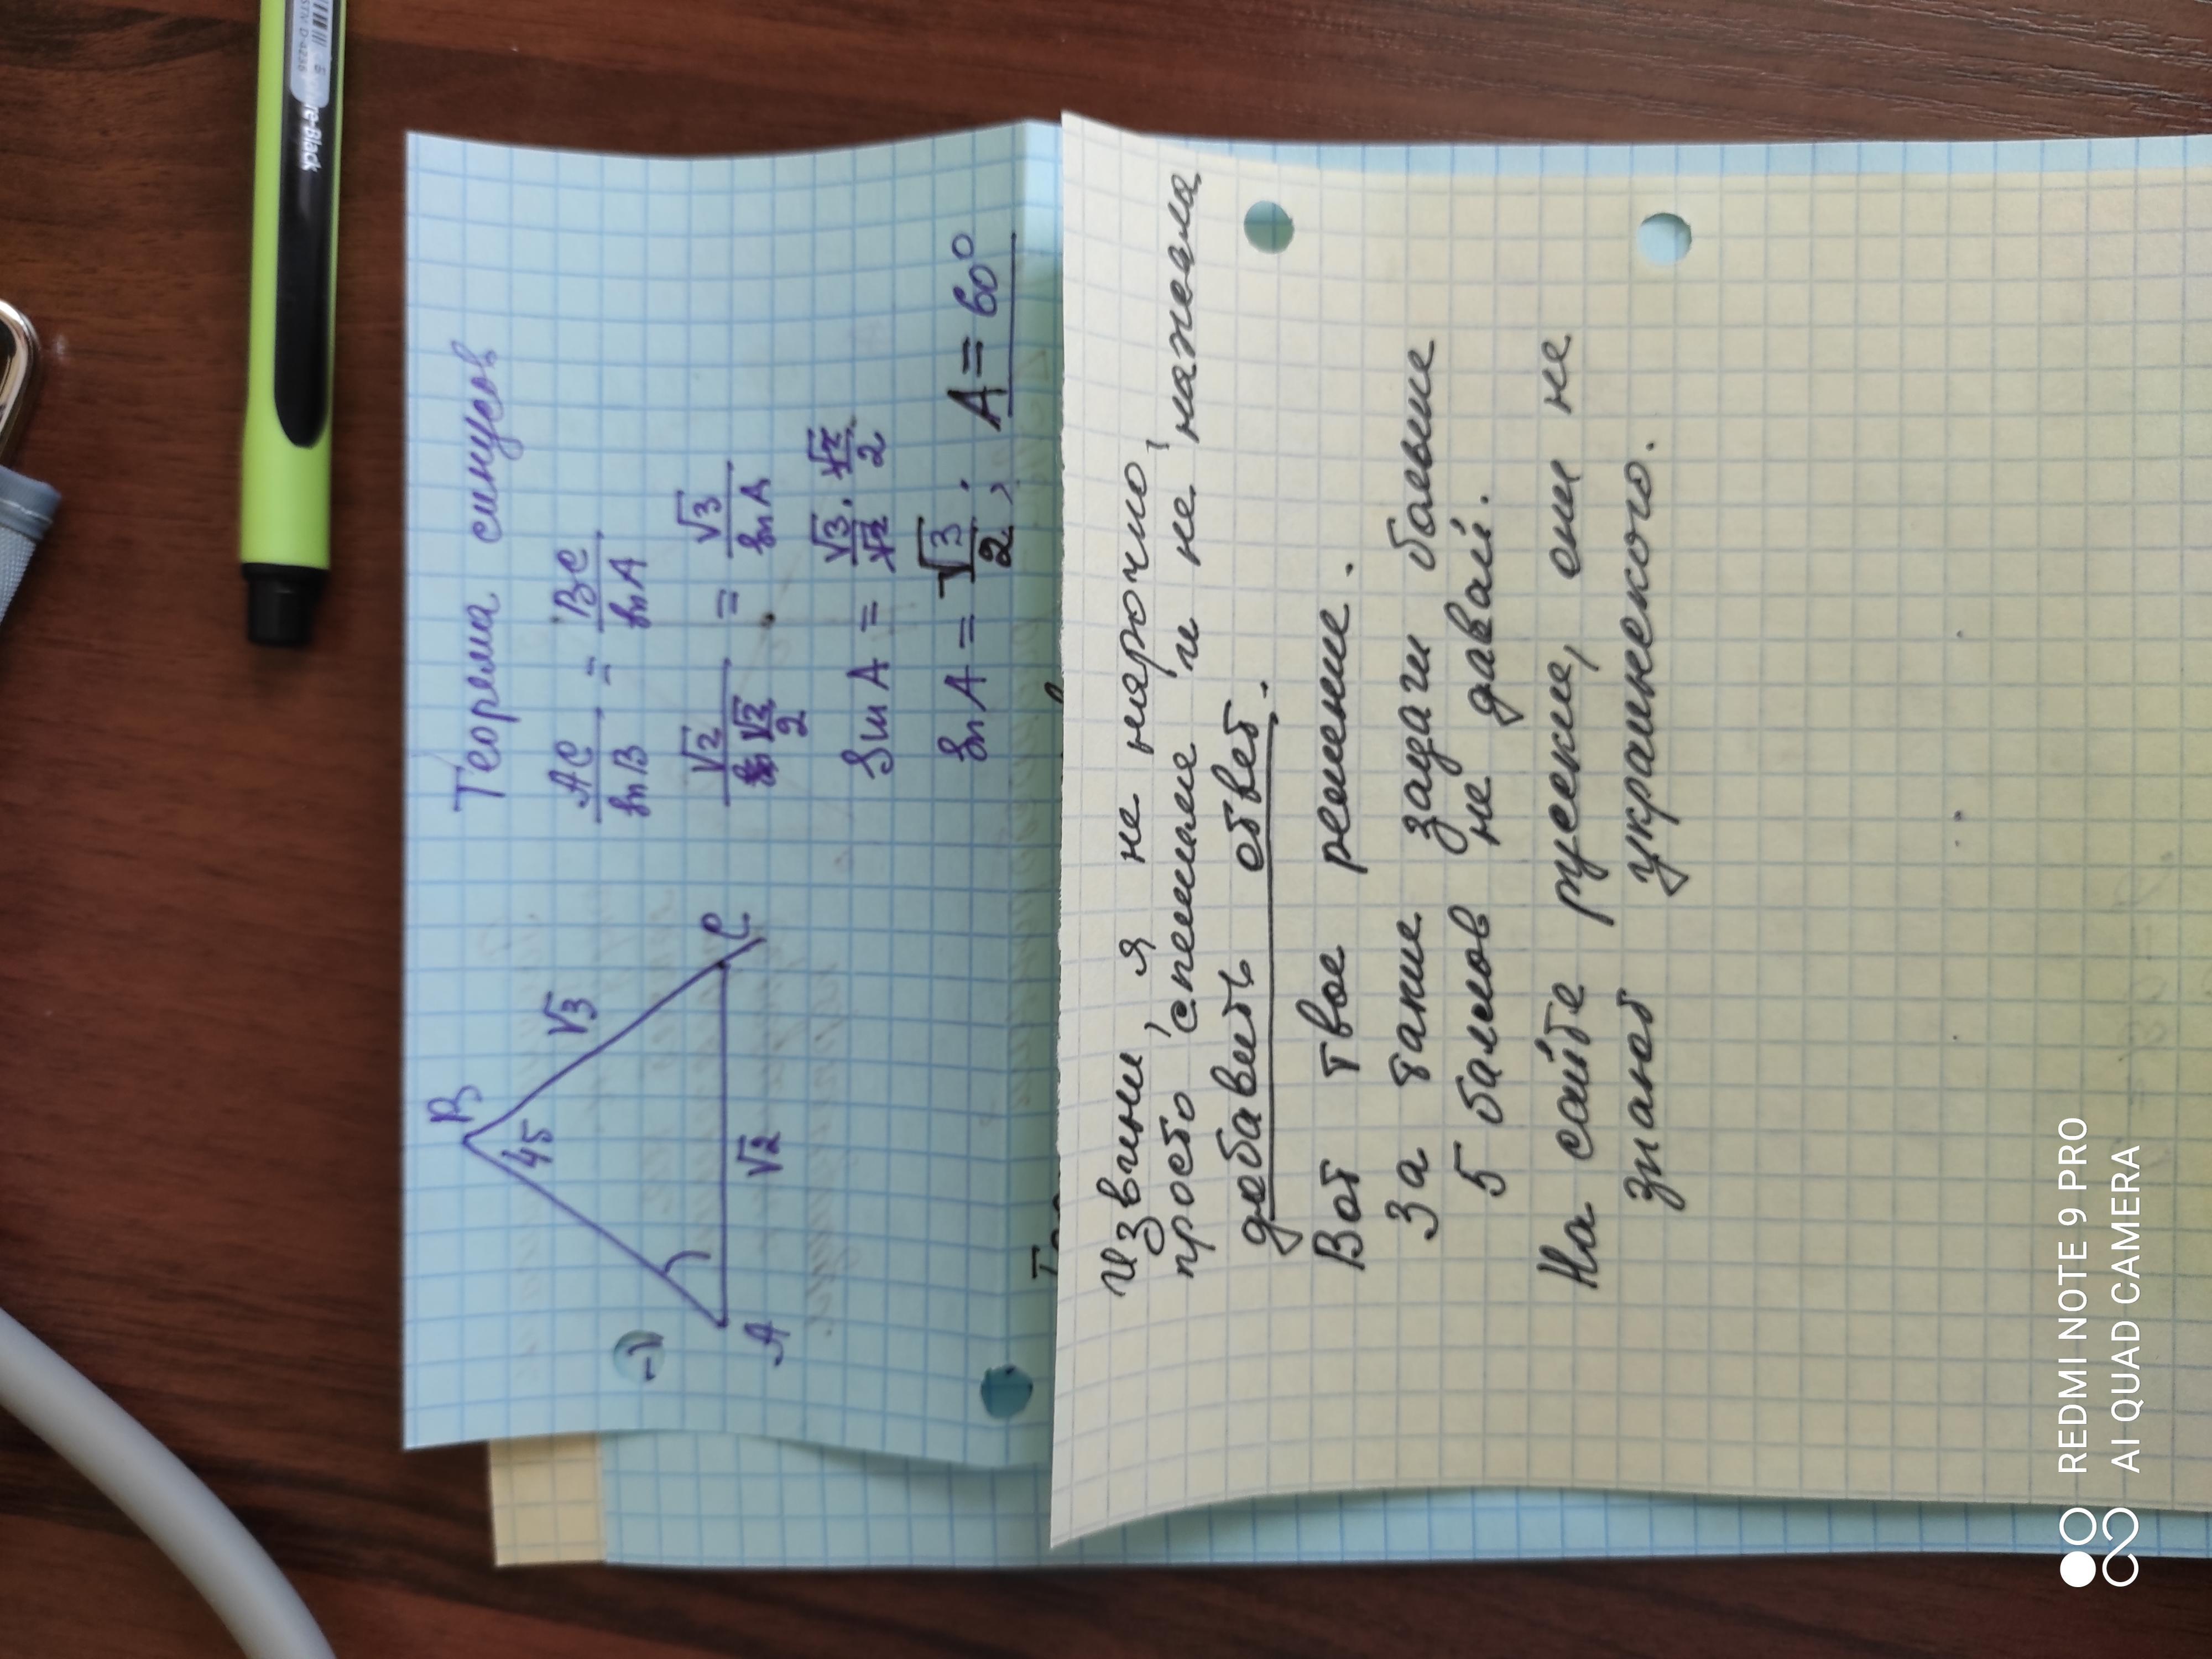 Теорема синусов
7)
B
45
√3
A
√2
C
AC/sin B = BC/sin A
√2/(√2/2) = √3/sin A
Sin A = √3/√2 · √2/2
sin A = √3/2; A = 60°
Извини, я не нарочно,
просто спешила и не нажала
добавить ответ.
Вот твое решение.
За такие задачи больше
5 баллов не давай.
На сайте русские, они не
знают украинского.
re-Black
REDMI NOTE 9 PRO
AI QUAD CAMERA